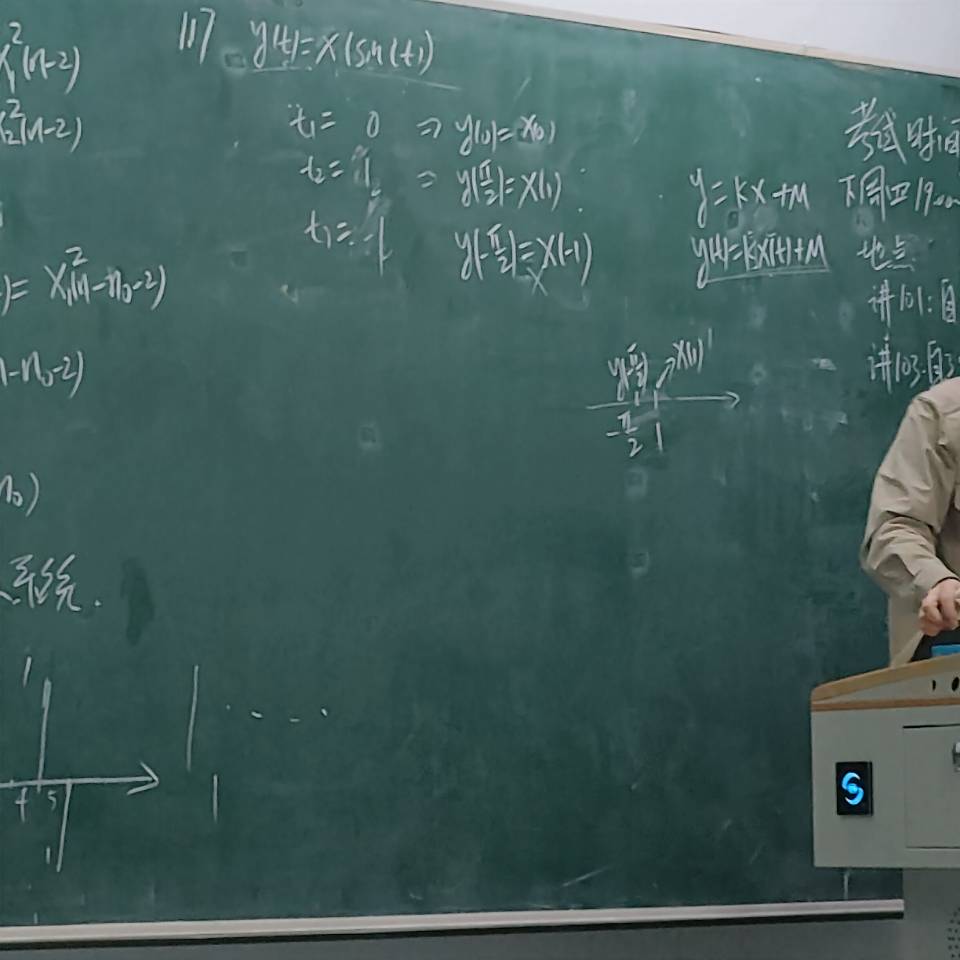 x₁²(n-2)
x₂²(n-2)
)= x₁²(n-n₀-2)
-n₀-2)
n₀)
系统.
4 5
117 y(t)=x(sin(t))
t₁= 0 => y(0)=x(0)
t₂= 1 => y(π/2)=x(1)
t₁= -1 y(-π/2)=x(-1)
y=kx+m
y(t)=kx(t)+m
x(1)
-π/2 1
考试时间
下周四19:00
地点
讲101:自
讲103:自3